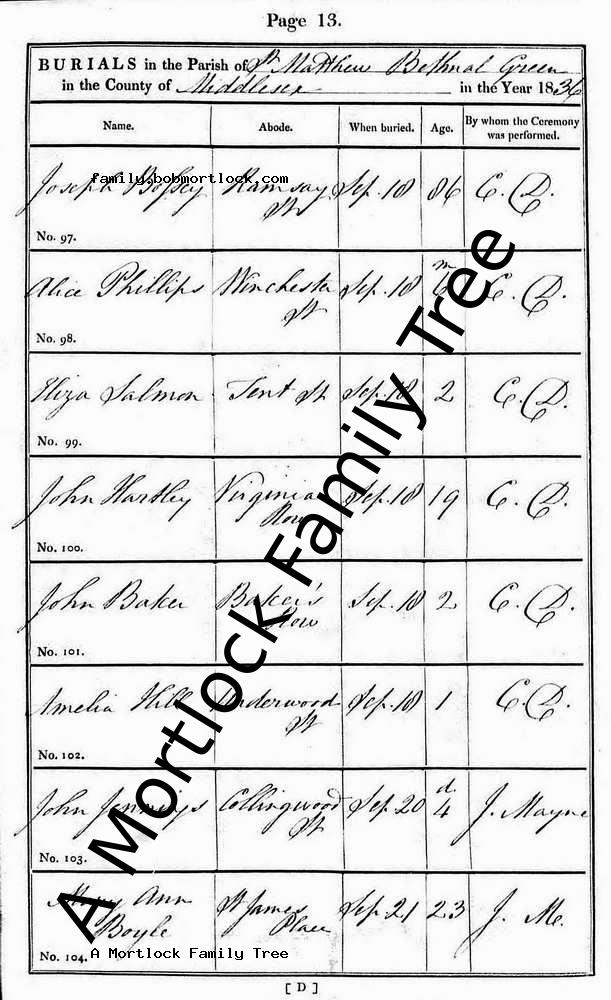 Page 13.
BURIALS in the Parish of St Matthew Bethnal Green
in the County of Middlesex in the Year 1836
Name. Abode. When buried. Age. By whom the Ceremony was performed.
family.bobmortlock.com
Joseph Ramsay St Sep. 18 86 C. D.
No. 97.
Alice Phillips Winchester St Sep. 18 6 m C. D.
No. 98.
Eliza Salmon Tent St Sep. 18 2 C. D.
No. 99.
John Hartley Virginia Row Sep. 18 19 C. D.
No. 100.
John Baker Baker's Row Sep. 18 2 C. D.
No. 101.
Amelia Hill Underwood St Sep. 18 1 C. D.
No. 102.
John Jennings Collingwood St Sep. 20 4 d. J. Mayne
No. 103.
Mary Ann Boyle St James Place Sep. 21 23 J. M.
No. 104.
A Mortlock Family Tree
A Mortlock Family Tree
[ D ]